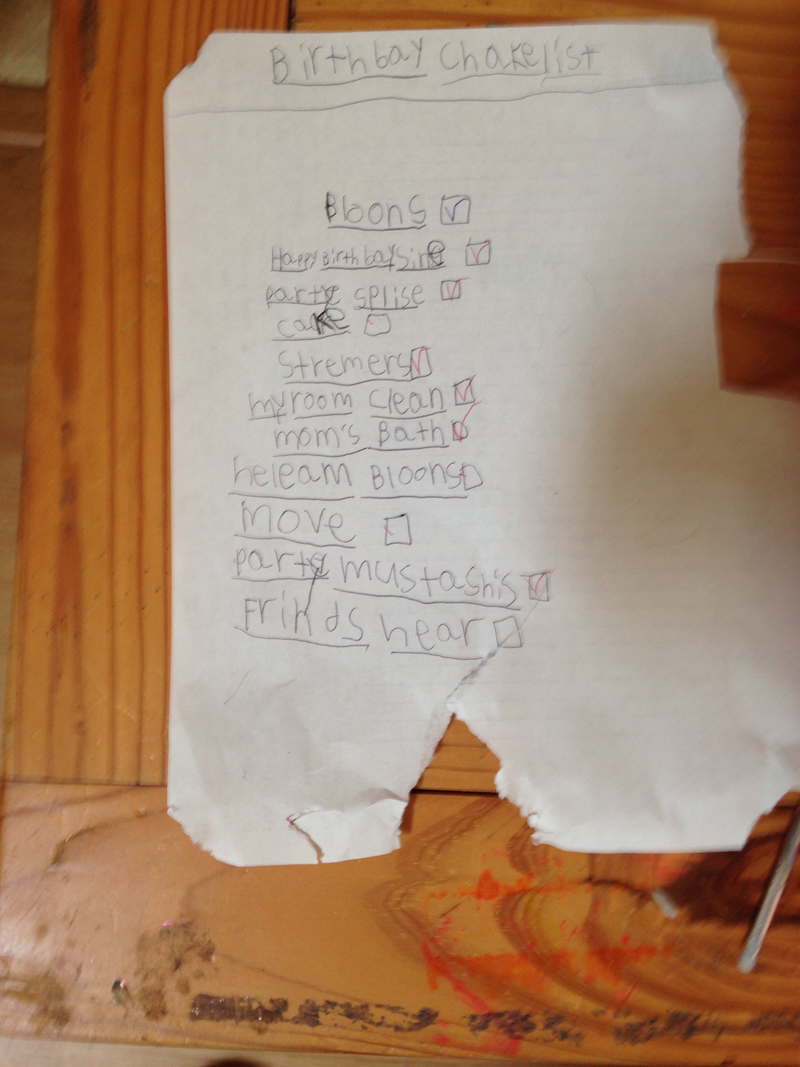 Birthbay Chakelist
Bloons
Happy Birthbay Sine
party splise
cake
Stremers
my room clean
mom's Bath
heleam Bloons
move
party mustashis
Frinds hear